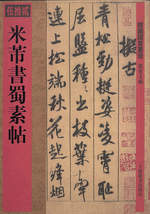 伍拾贰
米芾書蜀素帖
擬古
青松勁挺姿凌霄恥
屈盤種種出枝葉牽
連上松端秋花起絳煙